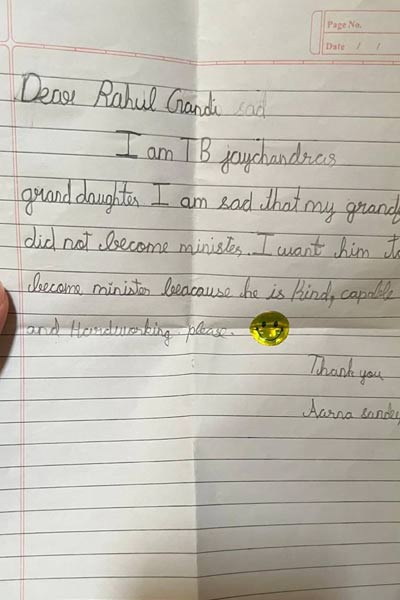 Page No.
Date / /
Dear Rahul Gandi sad
I am TB jaychandras
granddaughter I am sad that my grand
did not become minister. I want him to
become minister beacause he is kind, capable
and Hardworking please.
Thank you
Aarna sandee